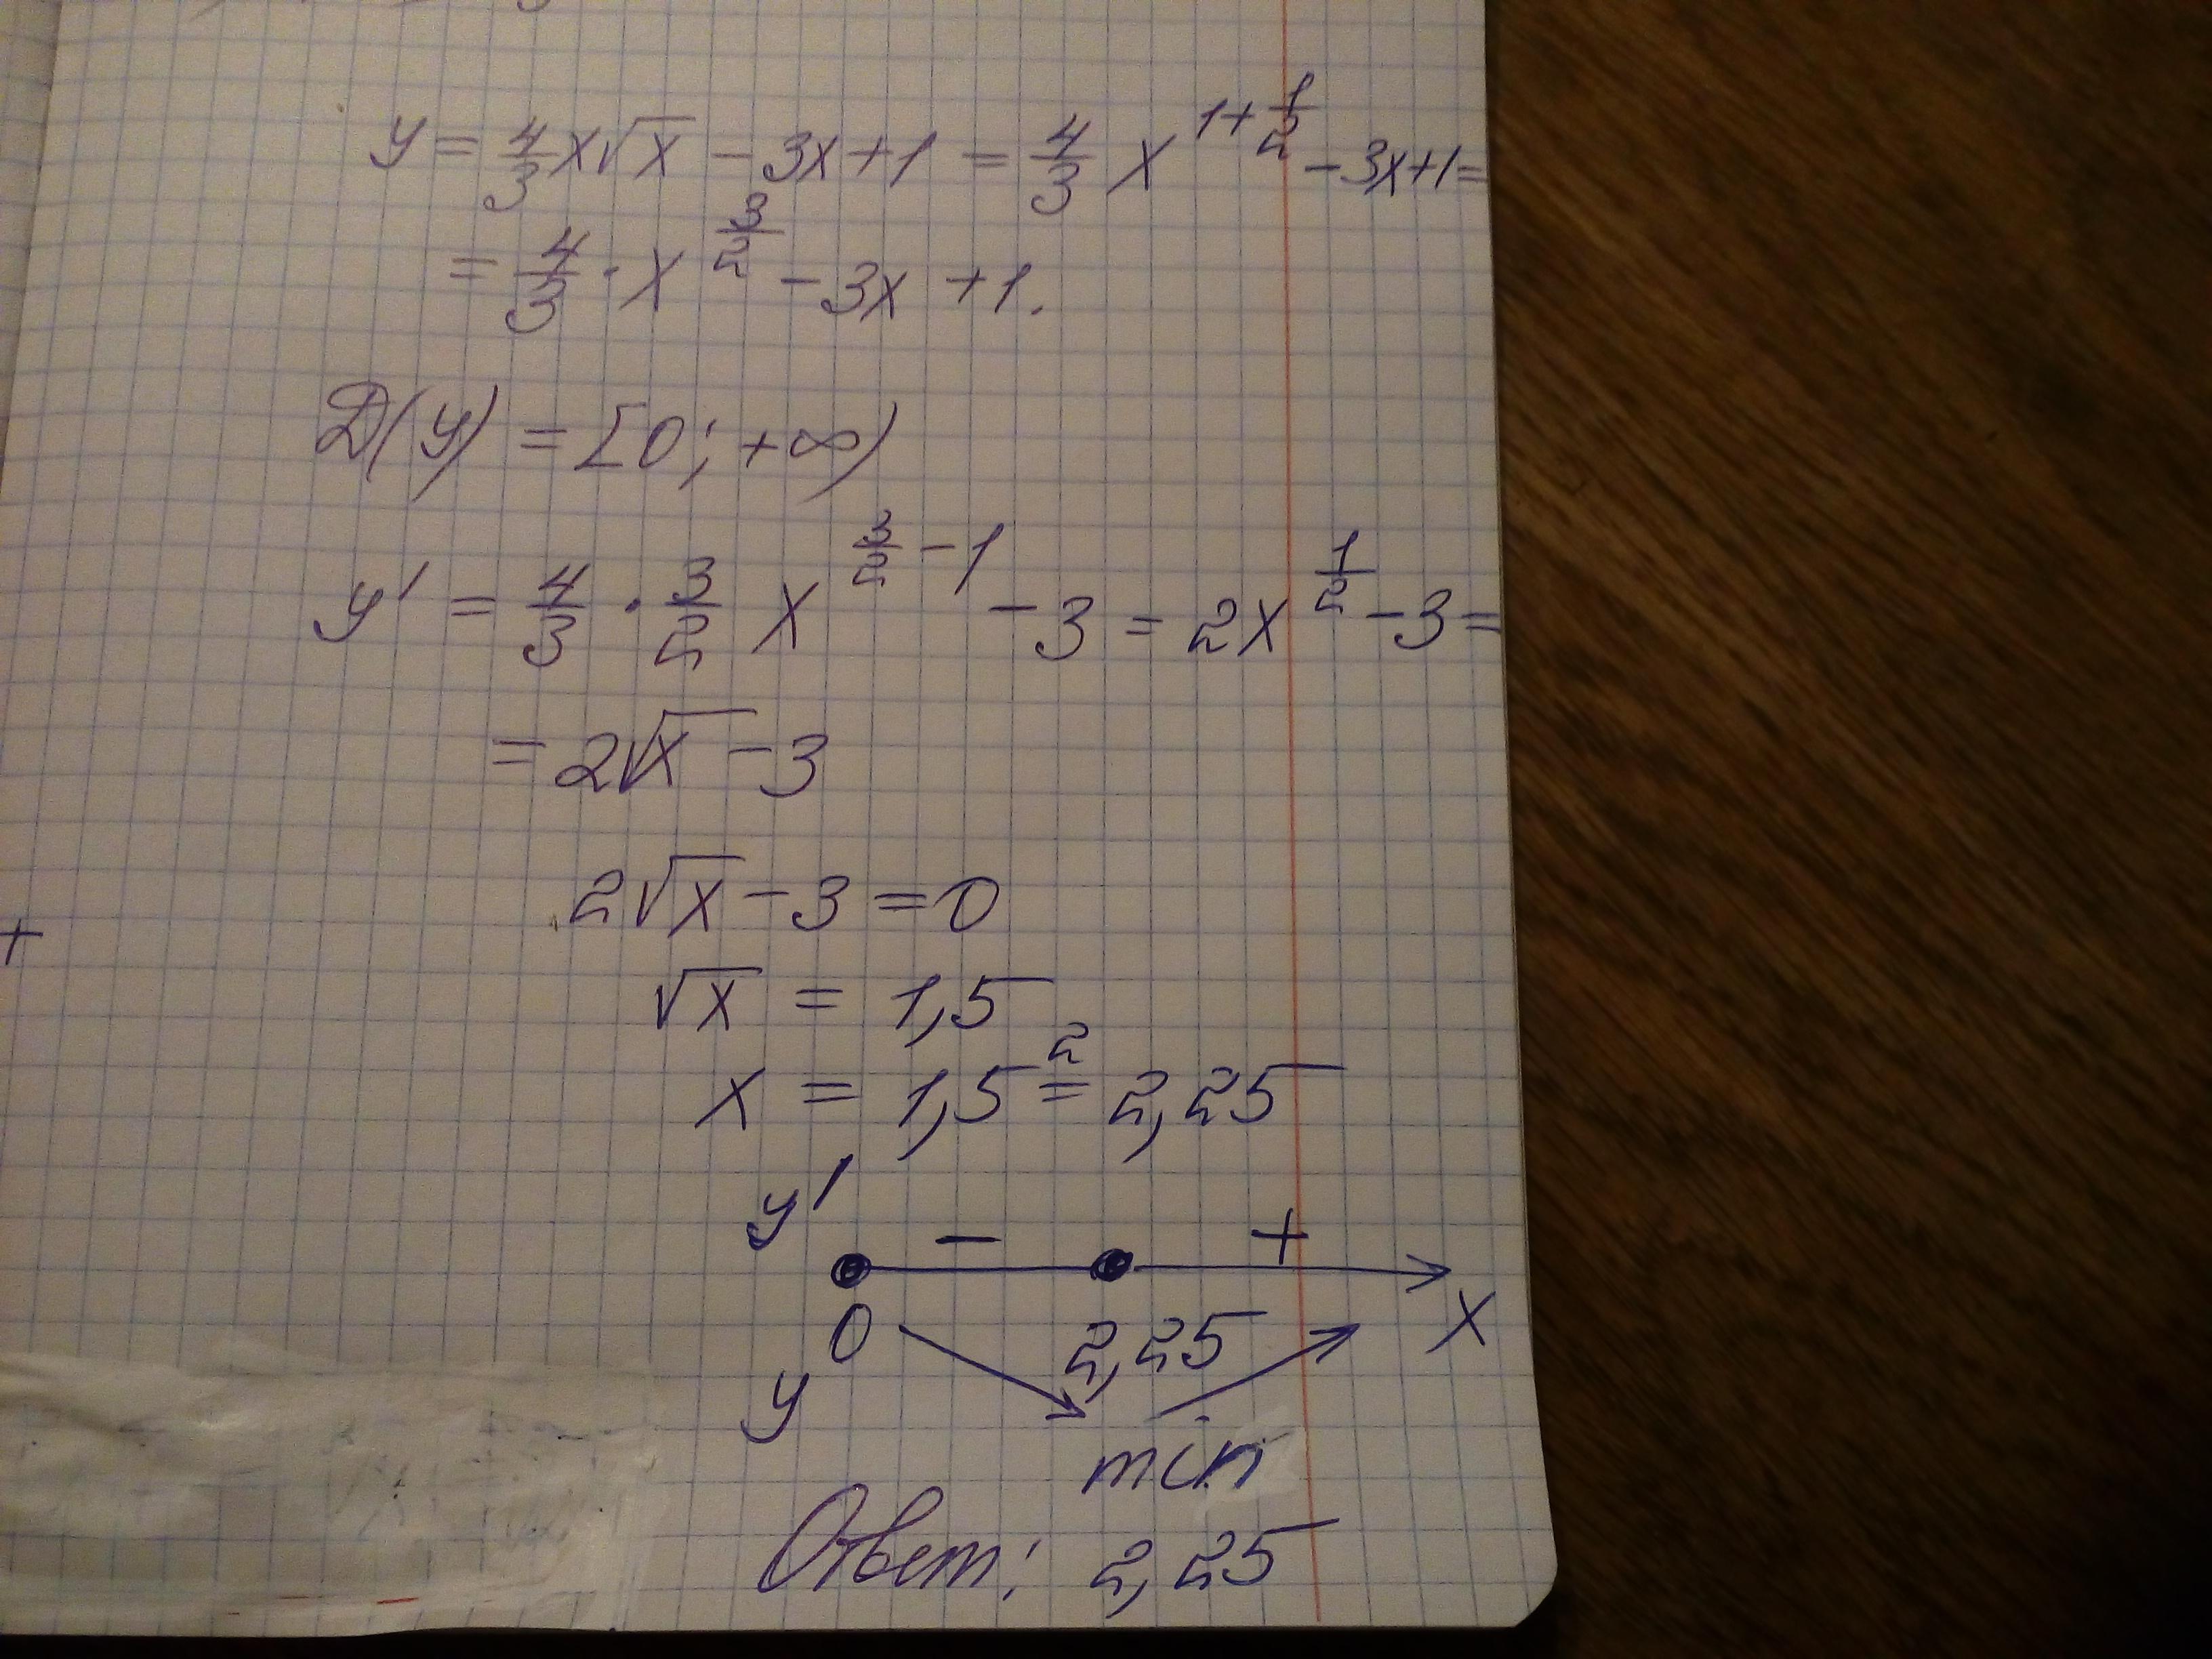 y = 4/3 x√x − 3x + 1 = 4/3 x^(1+1/2) − 3x + 1 =
= 4/3 · x^(3/2) − 3x + 1.
D(y) = [0; +∞)
y' = 4/3 · 3/2 x^(3/2 − 1) − 3 = 2x^(1/2) − 3 =
= 2√x − 3
2√x − 3 = 0
+
√x = 1,5
x = 1,5² = 2,25
y' − +
0 2,25 x
y
min
Ответ: 2,25